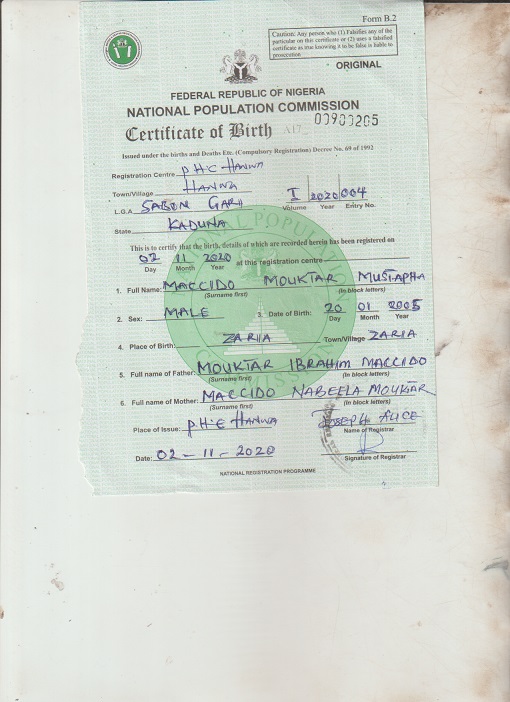 Form B.2
Caution: Any person who (1) Falsifies any of the
particular on this certificate or (2) uses a falsified
certificate as true knowing it to be false is liable to
prosecution
ORIGINAL
FEDERAL REPUBLIC OF NIGERIA
NATIONAL POPULATION COMMISSION
Certificate of Birth A17 00900205
Issued under the births and Deaths Etc. (Compulsory Registration) Decree No. 69 of 1992
Registration Centre PHC HANWA
Town/Village HANWA
L.G.A SABON GARI I 2020 004
Volume Year Entry No.
State KADUNA
This is to certify that the birth, details of which are recorded herein has been registered on
02 11 2020 at this registration centre
Day Month Year
1. Full Name: MACCIDO MOUKTAR MUSTAPHA
(Surname first) (In block letters)
2. Sex: MALE 3. Date of Birth: 20 01 2005
Day Month Year
4. Place of Birth ZARIA Town/Village ZARIA
5. Full name of Father: MOUKTAR IBRAHIM MACCIDO
(Surname first) (In block letters)
6. Full name of Mother: MACCIDO NABEELA MOUKTAR
(Surname first) (In block letters)
Place of Issue: P.H.C HANWA JOSEPH ALICE
Name of Registrar
Date: 02-11-2020
Signature of Registrar
NATIONAL REGISTRATION PROGRAMME